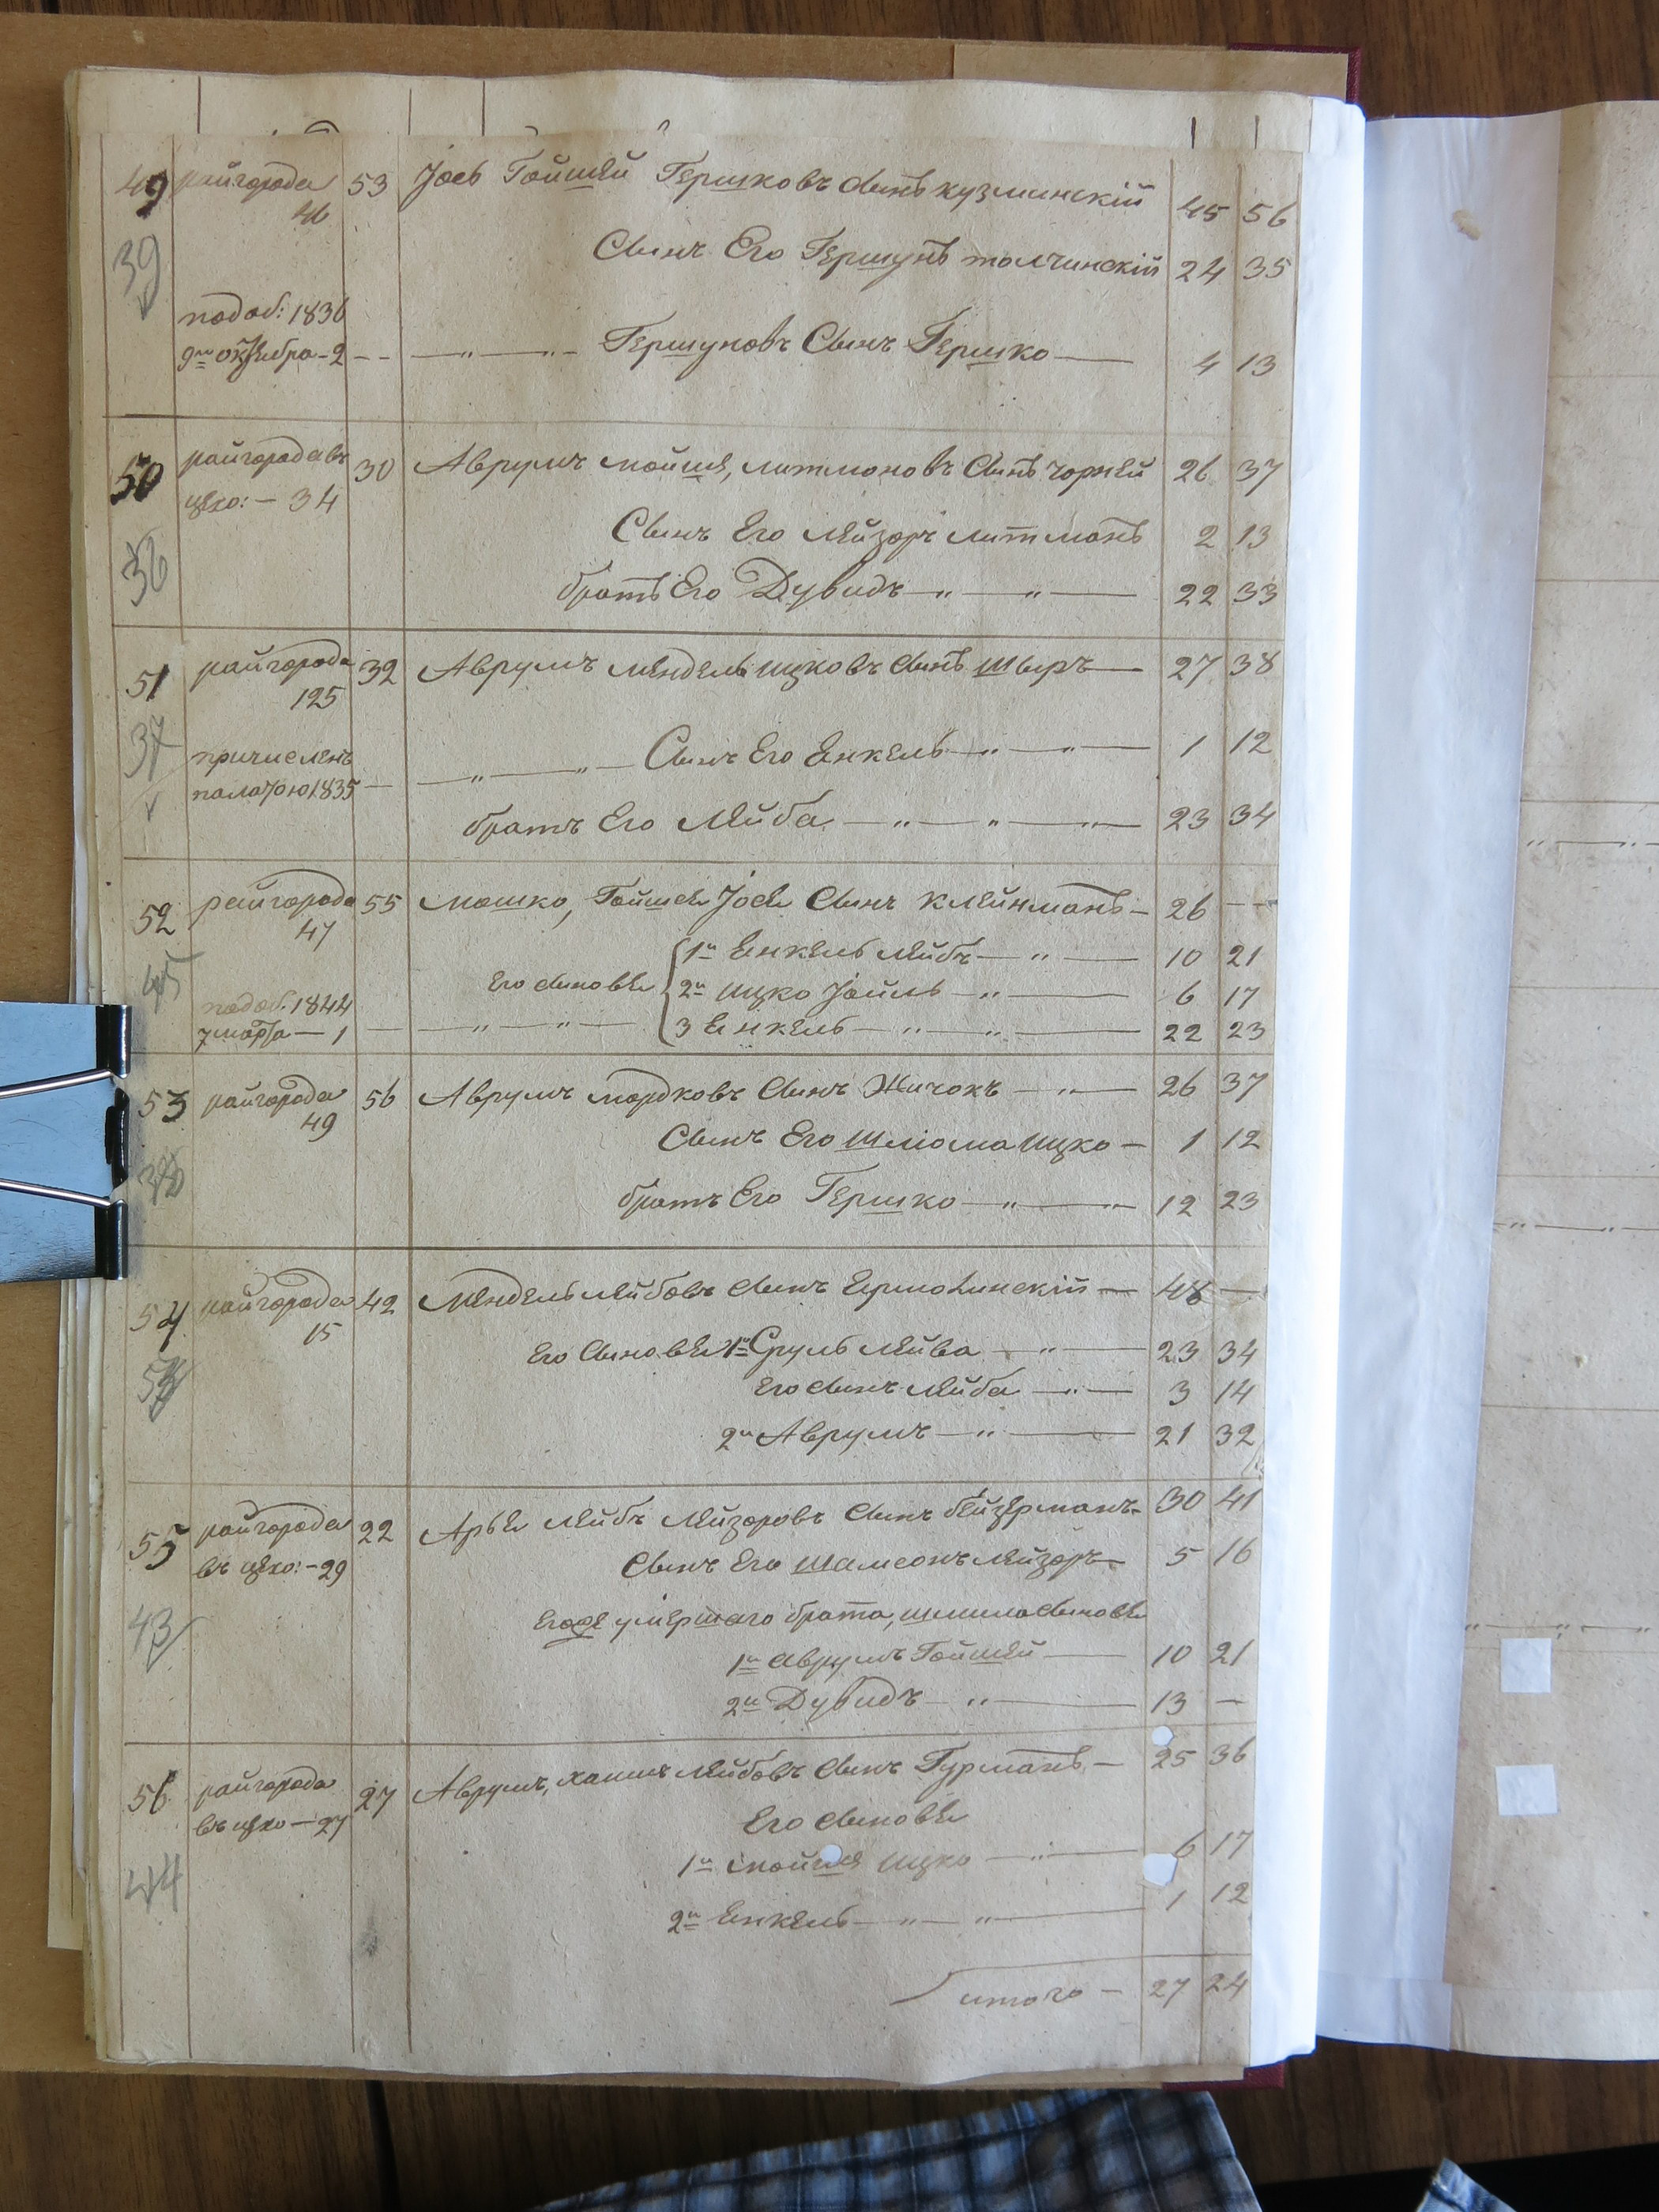 49 райгорода 53 Іось Гойшей Гершковъ сынъ кузминскій 45 56
46
39
Сынъ Его Гершунъ толчинскій 24 35
подоб: 1836
9го октября - 2 - - — " — " - Гершуновъ Сынъ Гершко — 4 13
50 райгорода въ 30 Аврумъ мойше, литмановъ Сынъ чорней 26 37
цехо: - 34
36 Сынъ Его лейзоръ литманъ 2 13
братъ Его Дувидъ — " — " — 22 33
51 райгорода 32 Аврумъ мендель ицковъ сынъ шверъ — 27 38
125
37 причисленъ Сынъ Его Енкель — " — " — 1 12
палатою 1835 — — " — " —
братъ Его Лейба — " — " — " — 23 34
52 райгорода 55 мошко, Гойшея Іося Сынъ клейманъ - 26 - -
47
1й Енкель лейбъ — " — 10 21
45 Его сыновья 2й ицко Іойль — " — 6 17
подоб: 1844
7 марта — 1 — — " — " — 3 Енкель — " — " — 22 23
53 райгорода 56 Аврумъ мордковъ Сынъ Жичокъ — " — 26 37
49
Сынъ Его шлиома ицко — 1 12
38
братъ Его Гершко — " — " — 12 23
54 райгорода 42 Мендель лейбовъ сынъ Ермолинскій — 48 —
15
Его Сыновья 1й Сруль лейба — " — 23 34
Его сынъ лейба — " — 3 14
2й Аврумъ — " — 21 32
55 райгорода 22 Арья лейбъ лейзоровъ Сынъ бейдерманъ - 30 41
въ цехо: - 29 Сынъ Его шамсонъ лейзоръ — 5 16
Егоже умершаго брата, шмила сыновья
43 1й аврумъ Гойшей — 10 21
2й Дувидъ — " — 13 —
56 райгорода 27 Аврумъ, хаимъ лейбовъ сынъ Гурманъ — 25 36
въ цехо — 27 Его сыновья
1й мойше ицко — " — 6 17
44
2й Енкель — " — " — 1 12
итого — 27 24